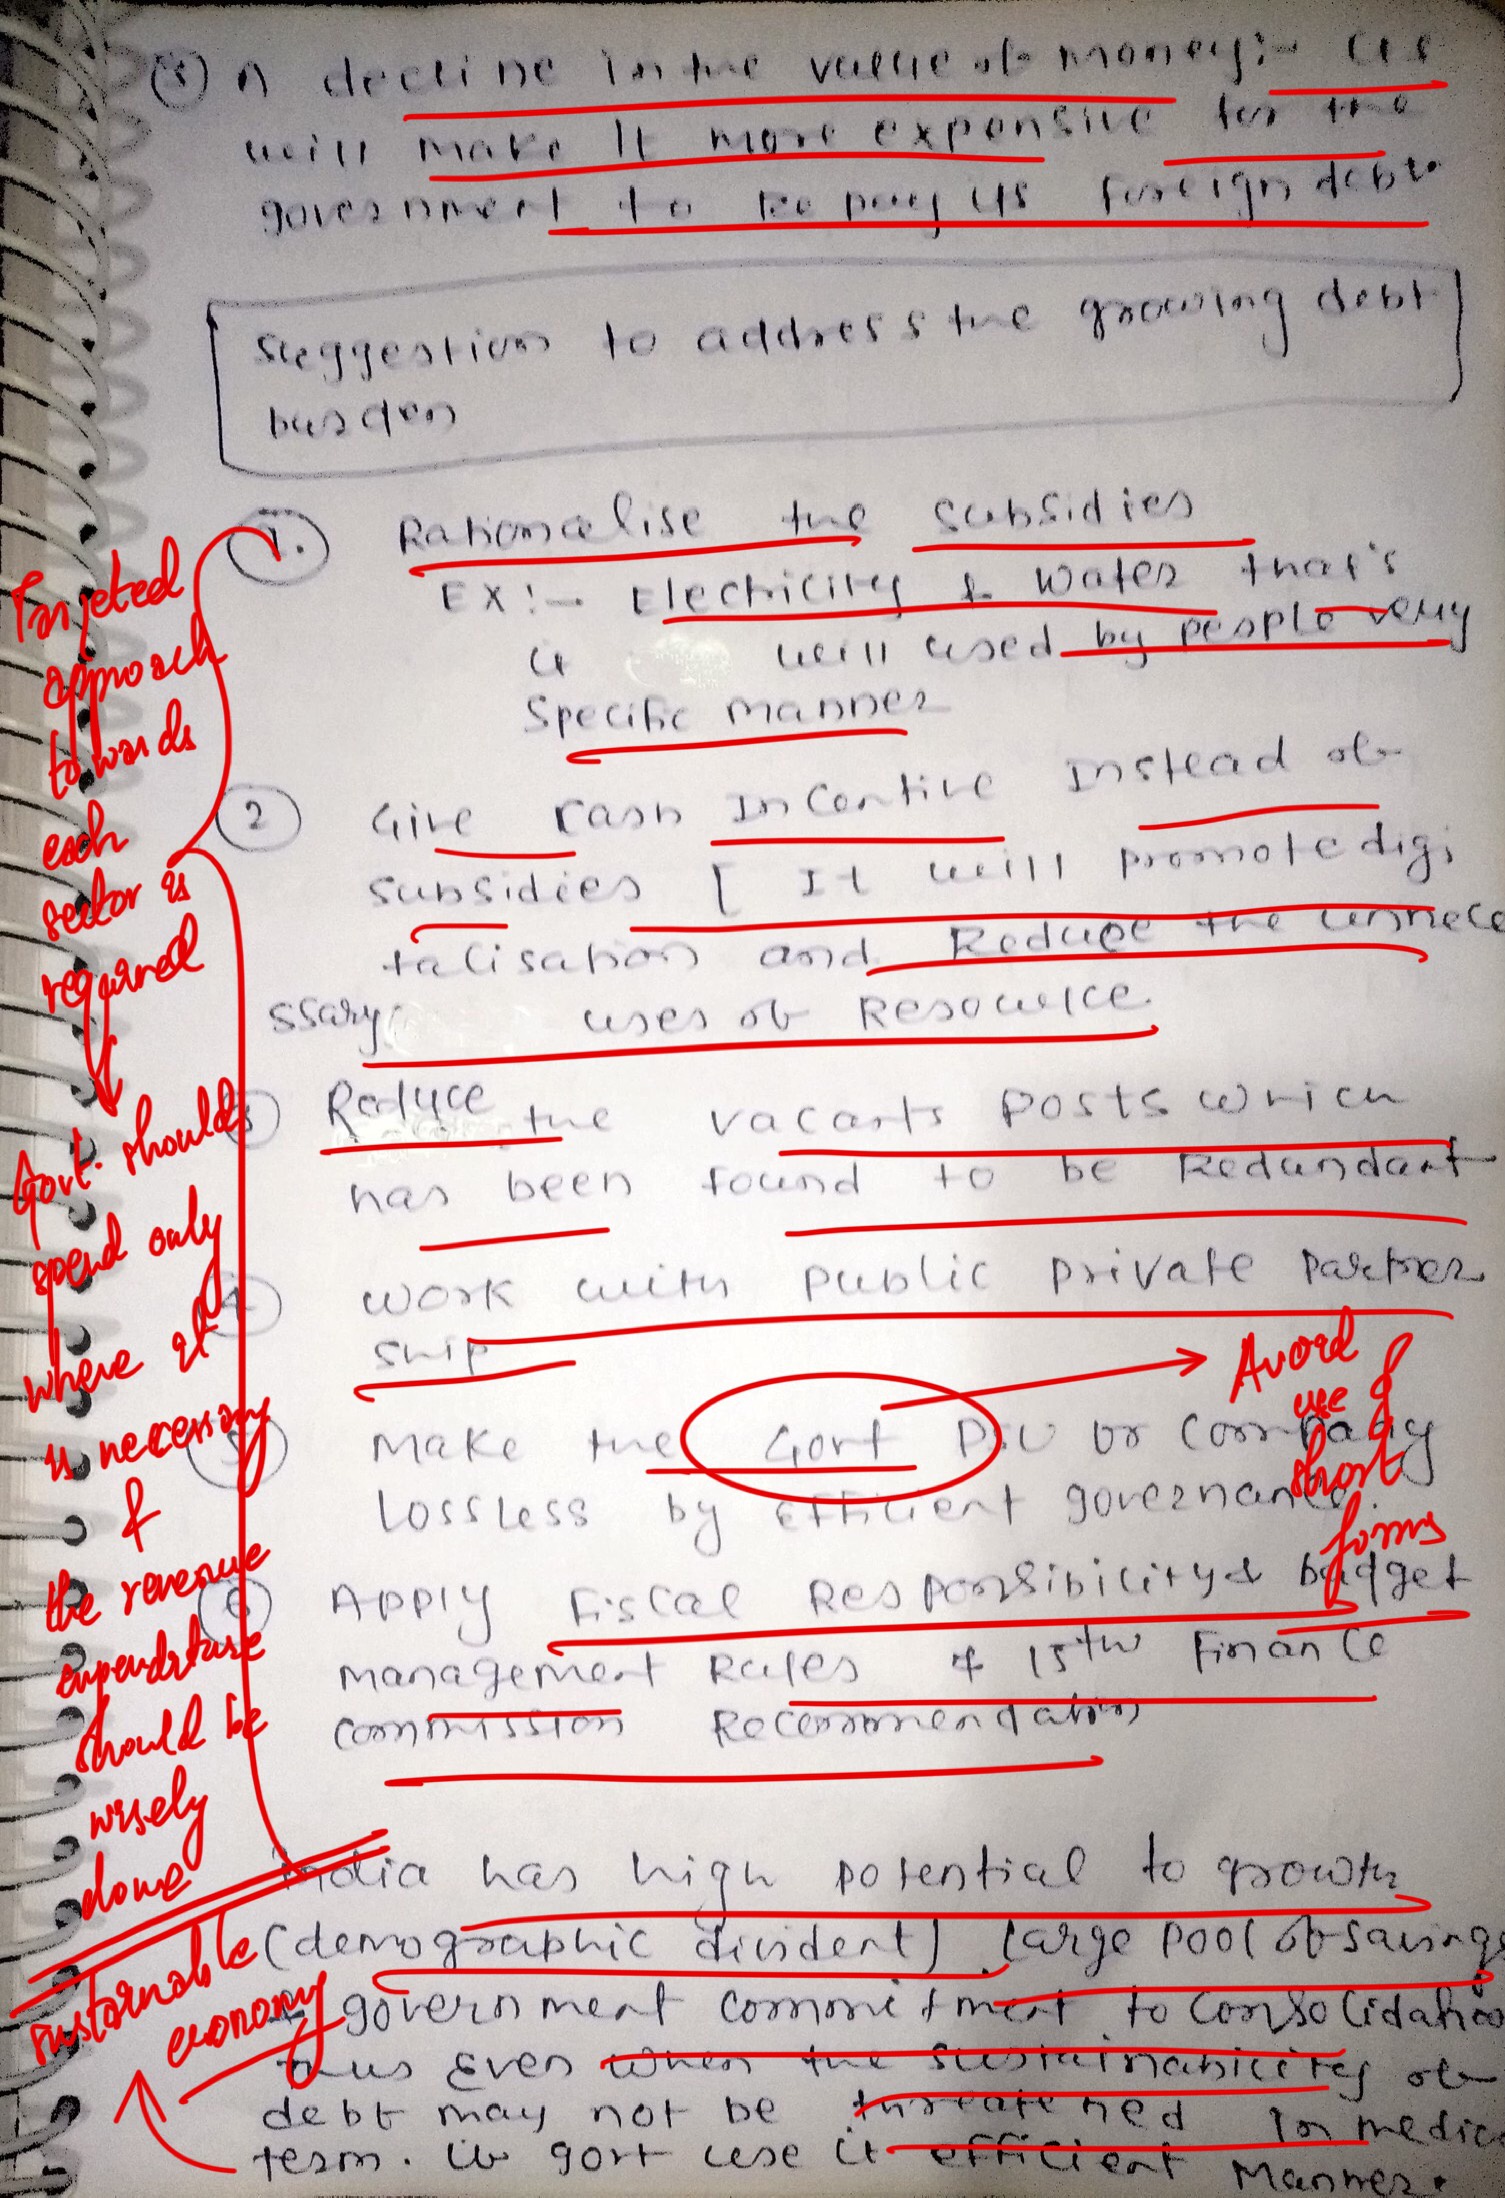 (5) A decline in the value of money:- It
will make it more expensive for the
government to repay its foreign debt.
Suggestion to address the growing debt
burden
1. Rationalise the subsidies
EX:- Electricity & Water that's
it will used by people very
Specific manner
2 Give cash Incentive Instead of
subsidies [ It will promote digi
talisation and Reduce the unnece
ssary uses of Resource.
3) Reduce the vacants posts which
has been found to be Redundant
4 work with public private partner
ship
5) Make the Govt PSU or Company
Lossless by efficient governance.
6 Apply Fiscal Responsibility & budget
management Rules & 15th Finance
commission Recommendation
India has high potential to growth
(demographic divident) large pool of savings
& government commitment to consolidation
thus Even when the sustainability of
debt may not be threatened in medium
term. if govt use it efficient manner.
Targeted
approach
towards
each
sector is
required
Govt. should
spend only
where it
is necessary
&
the revenue
expenditure
should be
wisely
done
Avoid
use of
short
forms
sustainable
economy